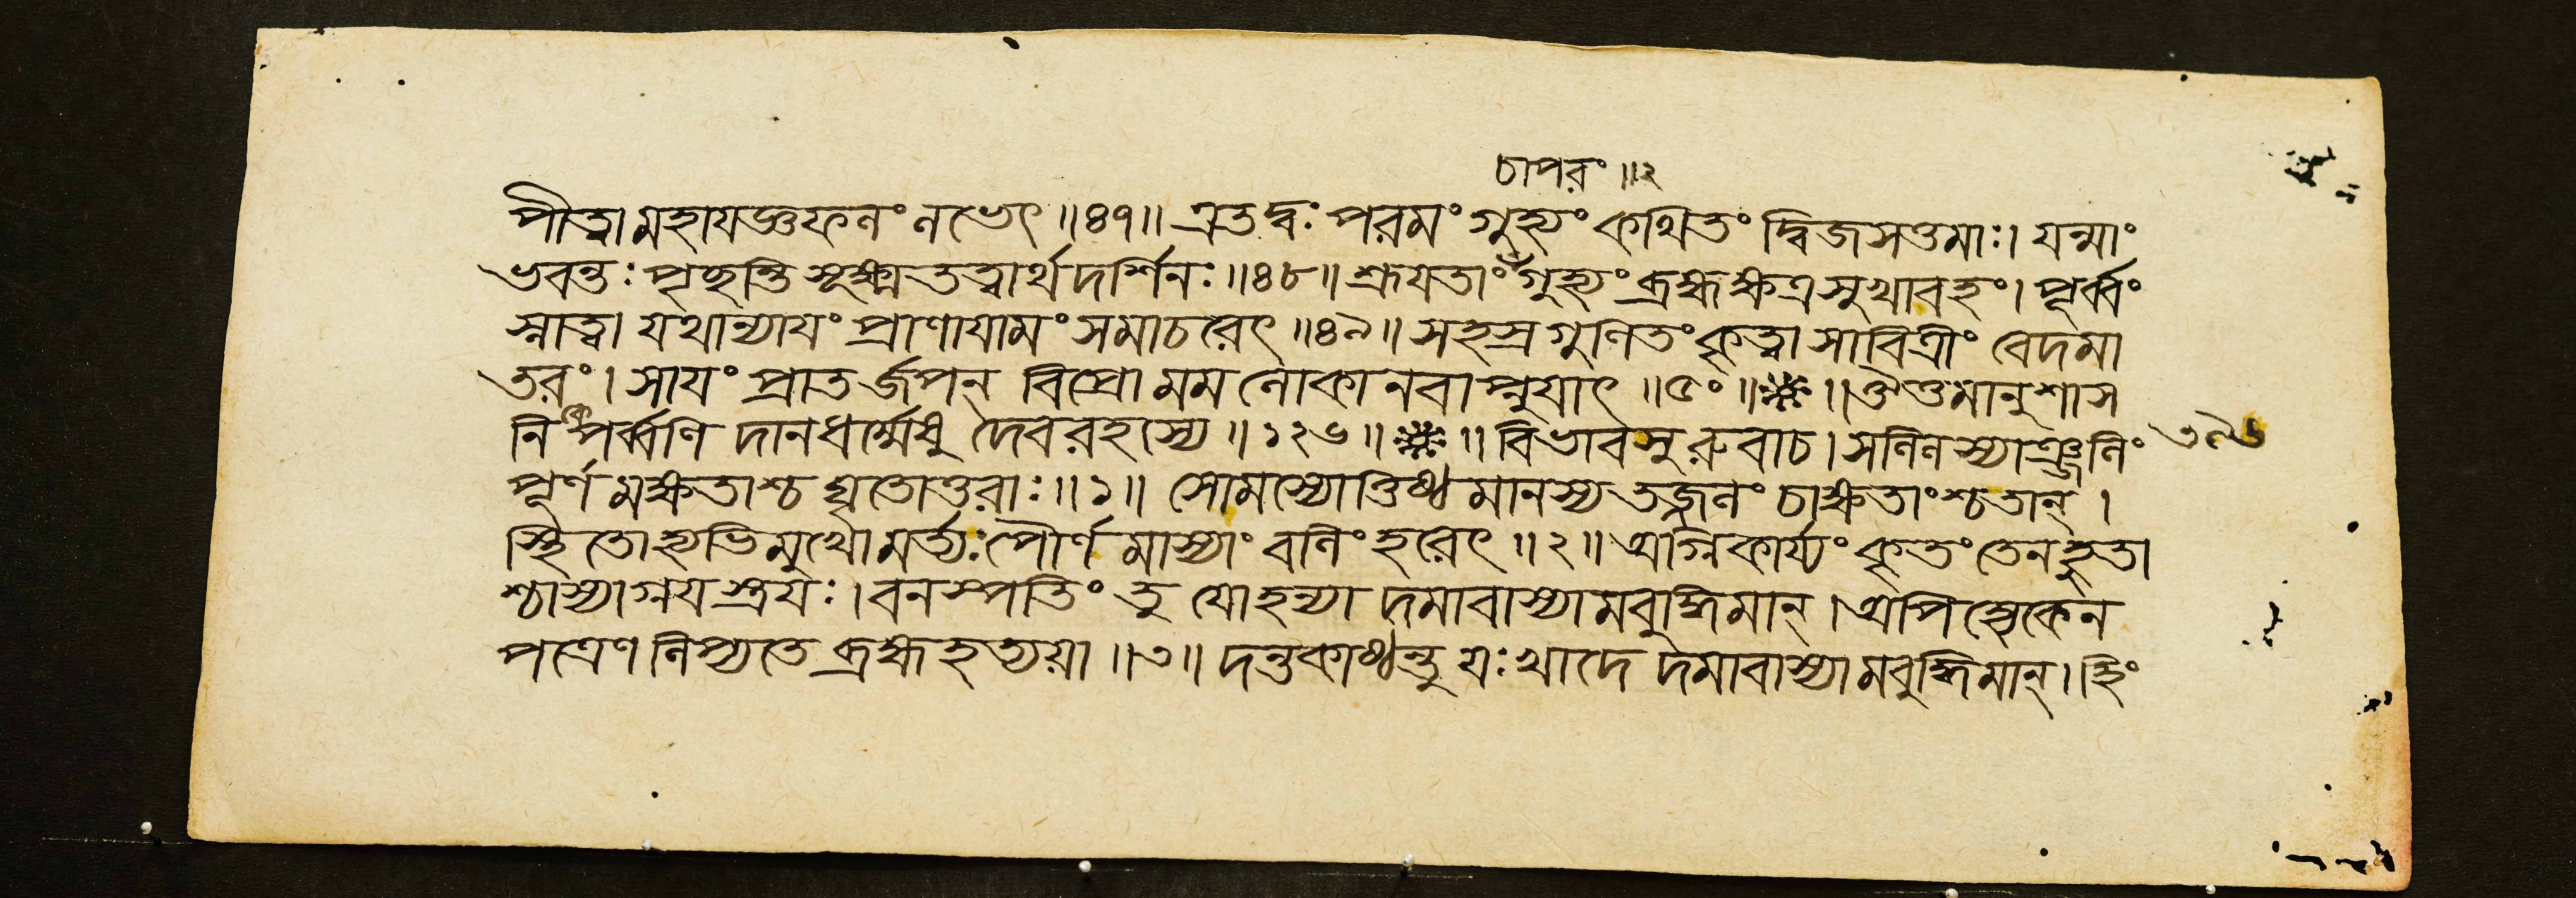 চাপরং ॥২
পীত্বা মহাযজ্ঞফলং লভেৎ ॥৪৭॥ এতদ্বঃ পরমং গুহ্যং কথিতং দ্বিজসত্তমাঃ। যন্মাং
ভবন্তঃ পৃচ্ছন্তি সূক্ষ্মতত্ত্বার্থদর্শিনঃ ॥৪৮॥ শ্রূযতাং গুহ্যং ব্রহ্মক্ষত্রসুখাবহং। পূর্ব্বং
স্নাত্বা যথান্যাযং প্রাণাযামং সমাচরেৎ ॥৪৯॥ সহস্রগুণিতং কৃত্বা সাবিত্রীং বেদমা
তরং। সাযং প্রাতর্জপন্ বিপ্রো মম লোকানবাপ্নুযাৎ ॥৫০॥ ❈ ॥ ঐত্তমানুশাস
নিকপর্ব্বণি দানধর্ম্মেষু দেবরহস্যে ॥১২৬॥ ❈ ॥ বিভাবসুরুবাচ। সলিলস্যাঞ্জলিং
পূর্ণমক্ষতাশ্চ ঘৃতোত্তরাঃ ॥১॥ সোমস্যোত্তিষ্ঠমানস্য তজ্জলং চাক্ষতাংশ্চ তান্।
স্থিতো হ্যভিমুখো মর্ত্যঃ পৌর্ণমাস্যাং বলিং হরেৎ ॥২॥ অগ্নিকার্য্যং কৃতং তেন হুতা
শ্চাস্যাগ্নযস্ত্রযঃ। বনস্পতিং তু যো হন্যাদমাবাস্যামবুদ্ধিমান্। অপি হ্যেকেন
পত্রেণ লিপ্যতে ব্রহ্মহত্যযা ॥৩॥ দন্তকাষ্ঠন্তু যঃ খাদেদমাবাস্যামবুদ্ধিমান্। হিং